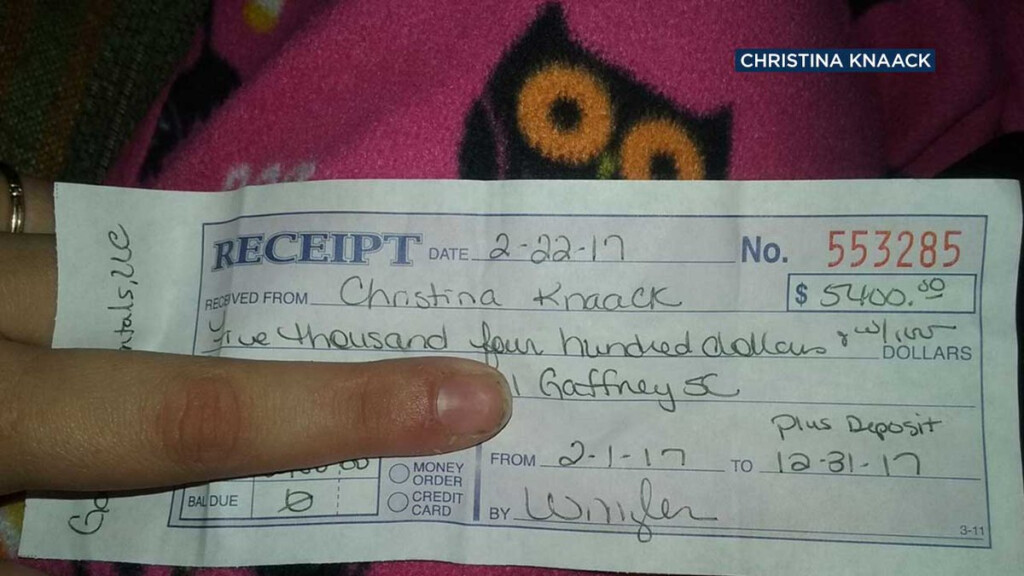 CHRISTINA KNAACK
RECEIPT DATE 2-22-17 No. 553285
RECEIVED FROM Christina Knaack $ 5400.00
Five thousand four hundred dollars & w/100 DOLLARS
Gaffney SC
Plus Deposit
FROM 2-1-17 TO 12-31-17
MONEY ORDER
CREDIT CARD
BAL DUE 0
BY
3-11
ntals, LLC